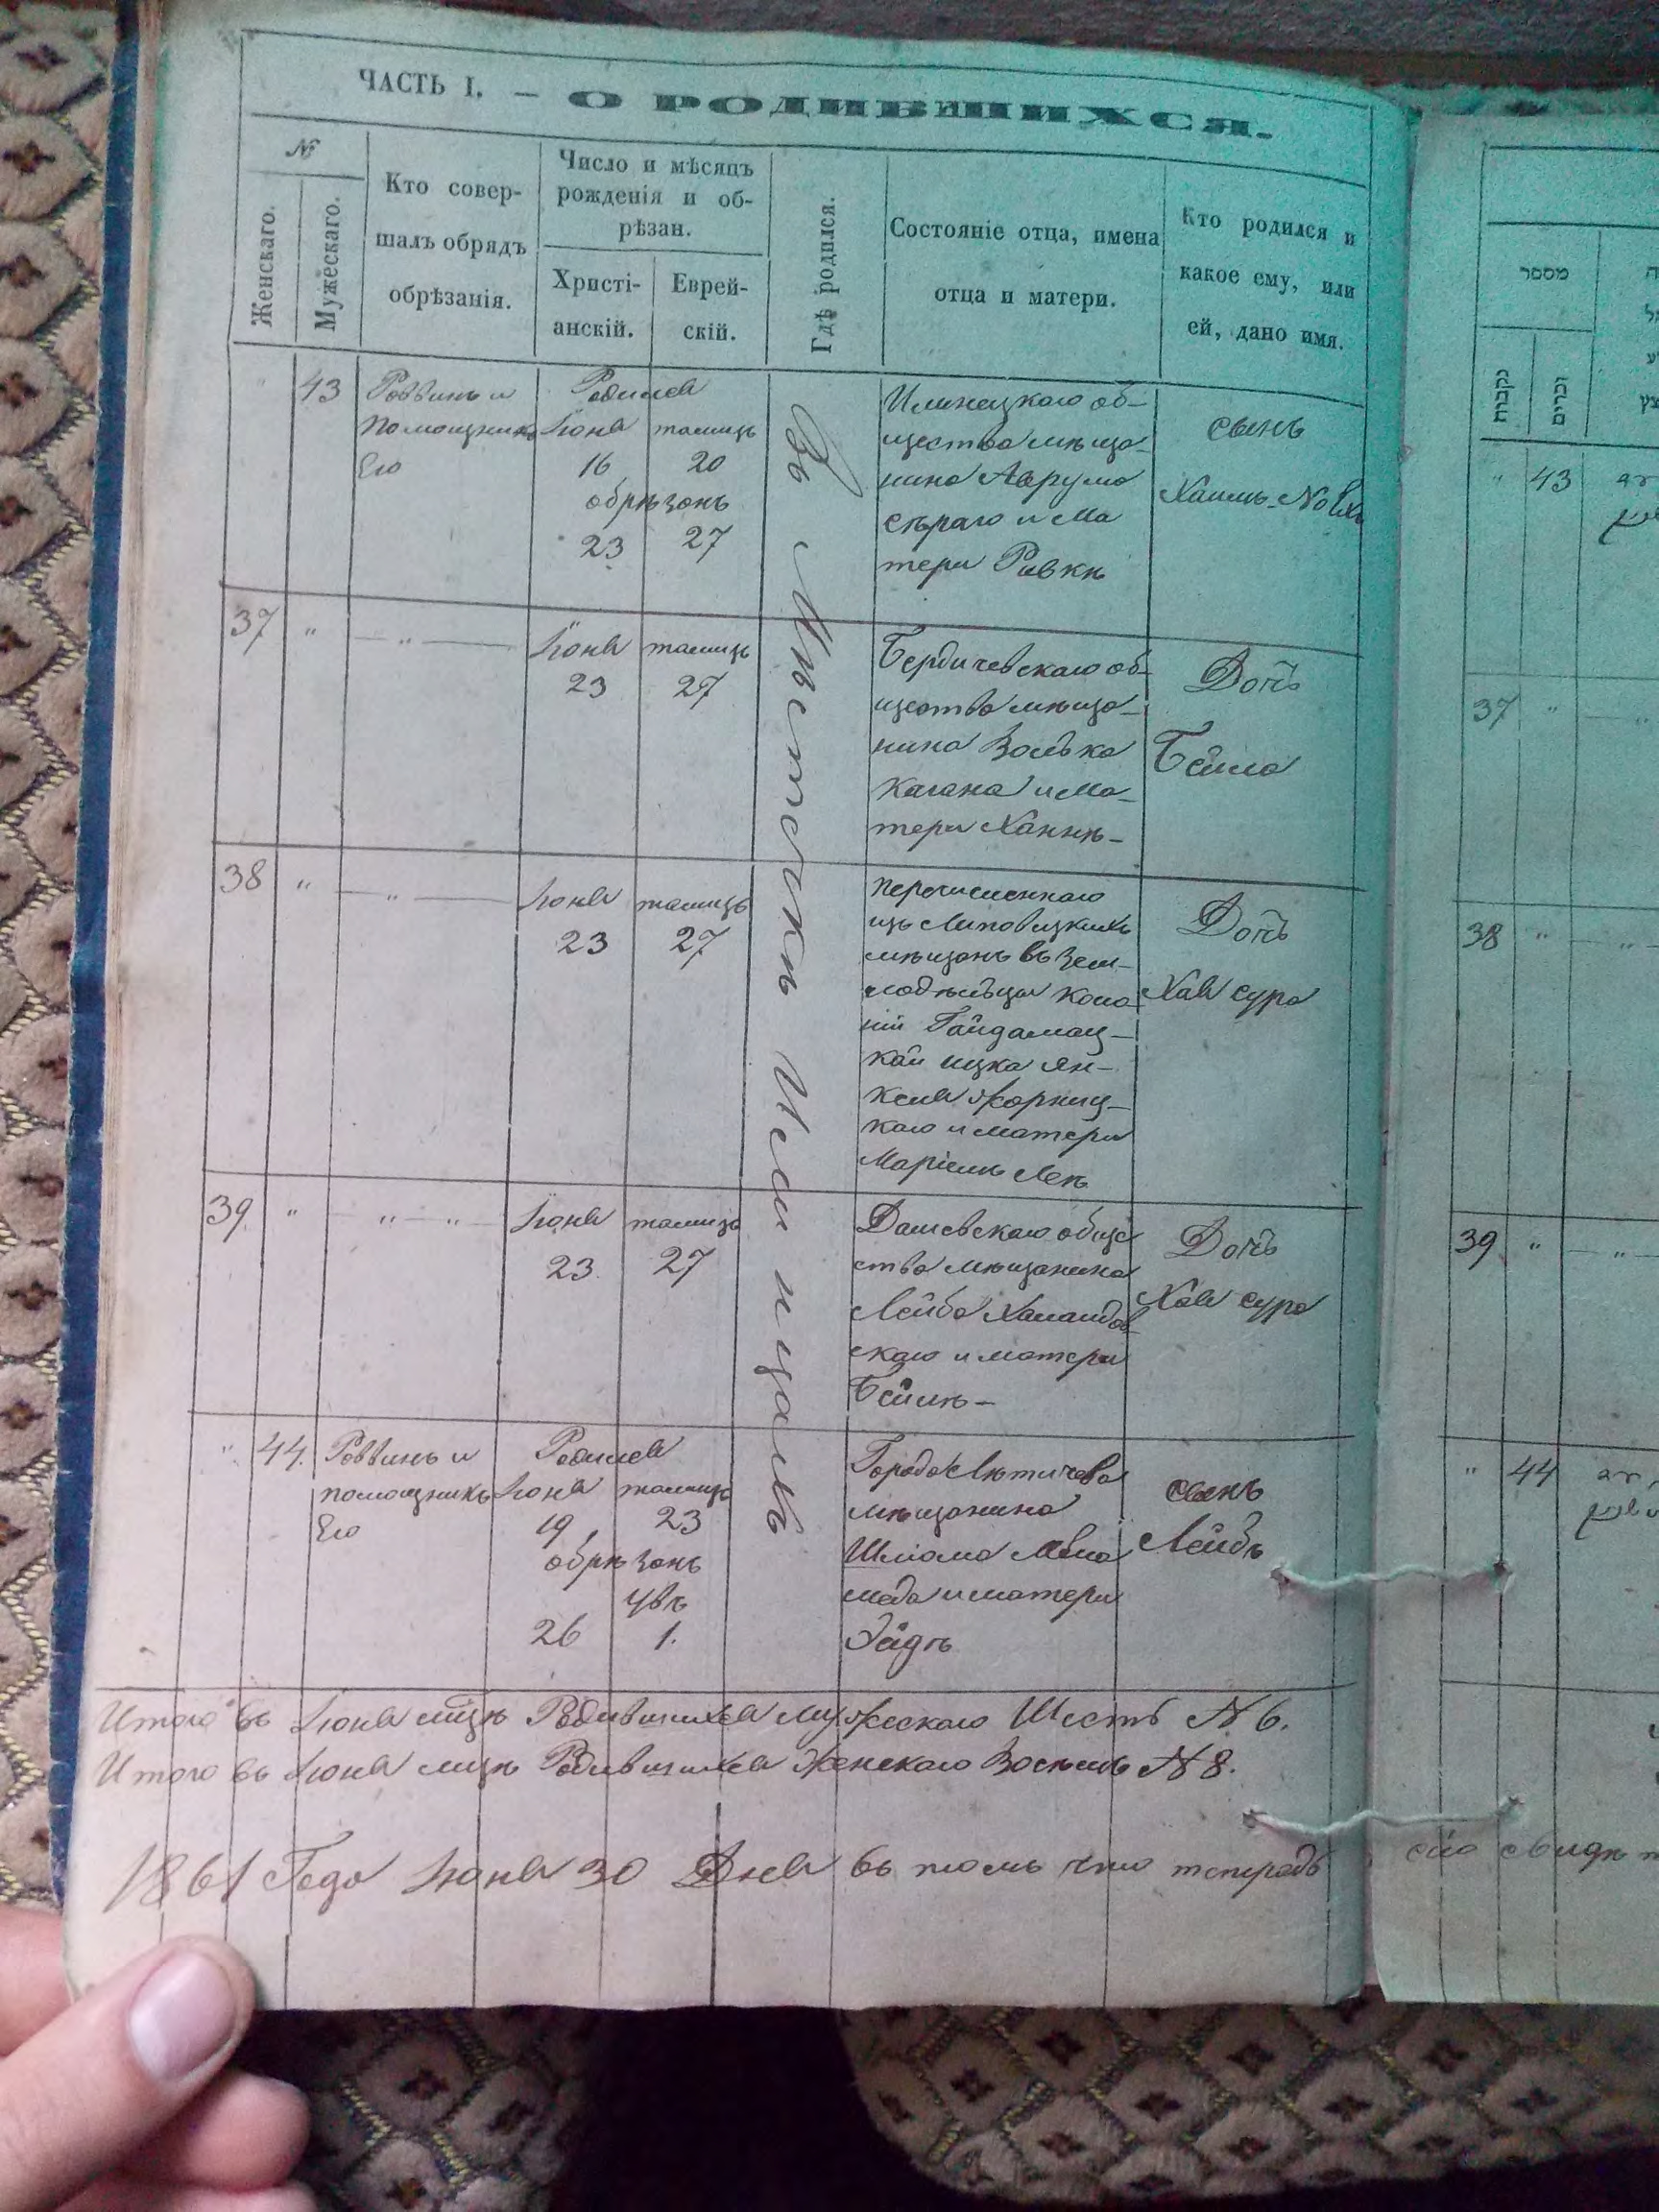 ЧАСТЬ I. — О РОДИВШИХСЯ.
№
Женскаго.
Мужескаго.
Кто совер-
шалъ обрядъ
обрѣзанія.
Число и мѣсяцъ
рожденія и об-
рѣзан.
Христі-
анскій.
Еврей-
скій.
Гдѣ родился.
Состояніе отца, имена
отца и матери.
Кто родился и
какое ему, или
ей, дано имя.
" 43
Раввинъ и
помощникъ
Его
Родился
Іюня тамизъ
16 20
обрѣзанъ
23 27
Въ Мѣстечкѣ Илинцахъ
Илинецкаго об-
щества мѣща-
нина Аврума
Сѣраго и ма
тери Ривкѣ
сынъ
Хаимъ
37 " — " —
Іюня тамизъ
23 27
Бердичевскаго об-
щества мѣща-
нина Волька
Кагана и ма-
тери Ханнѣ-
Дочь
Бейла
38 " — " —
Іюня тамизъ
23 27
перечисленнаго
изъ Липовецкихъ
мѣщанъ въ зем-
ледѣльцы коло
ніи Гайдамац-
кай ицка Ян-
келя Жорниц-
каго и матери
Маріемъ Леѣ
Дочь
Хая сура
39 " — " — " —
Іюня тамизъ
23 27
Дашевскаго обще
ства мѣщанина
Лейба
скаго и матери
Бейлѣ-
Дочь
Хая сура
" 44.
Раввинъ и
помощникъ
Его
Родился
Іюня тамизъ
19 23
обрѣзанъ
Увъ
26 1.
Города Лѣтичева
мѣщанина
Шліома
и матери
сынъ
Лейбъ
Итого въ Іюня мцѣ Родившихся мужескаго Шесть N 6.
Итого въ Іюня мцѣ Родившихся Женскаго Восѣмь N 8.
1861 Года Іюня 30 Дня въ томъ что тетрадь
מספר
נקבות
זכרים
" 43
37 "
38 "
39 "
" 44
сію свидѣт